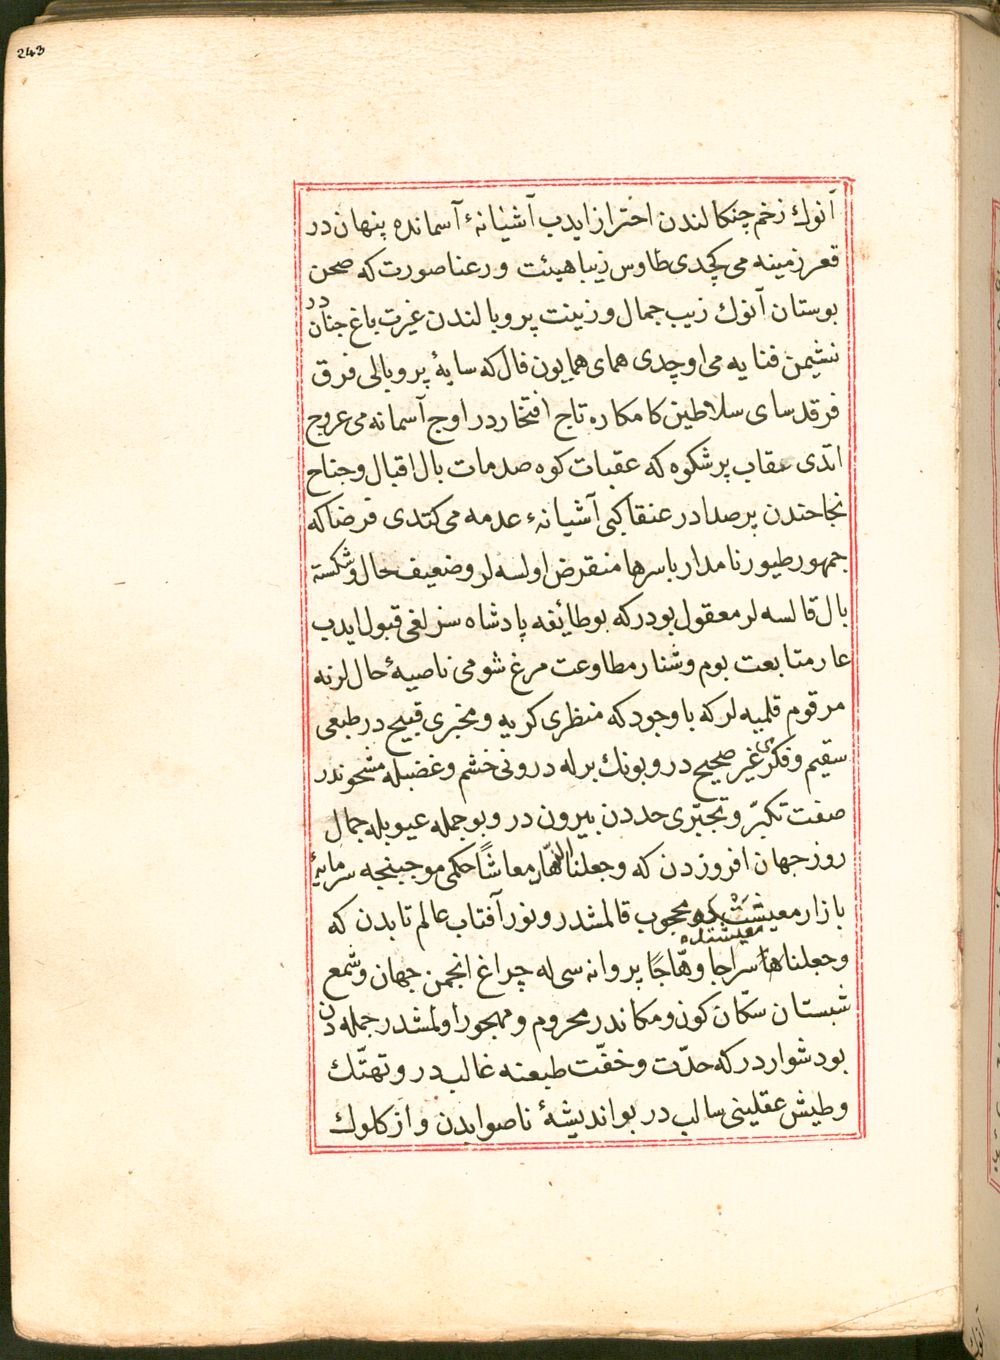 243
آنوك زخم چنكالندن احتراز ايدب آشيانۀ آسمانده پنهان در
قعر زمينه مى كچدى طاوس زيبا هيئت ورعنا صورت كه صحن
بوستان آنوك زيب جمال وزينت پر وبالندن غيرت باغ جناندر
نشيمن فنايه مى اوچدى هماى همايون فال كه سايۀ پر وبالى فرق
فرقدساى سلاطين كامكاره تاج افتخاردر اوج آسمانه مى عروج
اتدى عقاب پرشكوه كه عقبات كوه صدمات بال اقبال وجناح
نجاحندن پرصدادر عنقا كبى آشيانۀ عدمه مى كتدى فرضا كه
جمهور طيور نامدار باسرها منقرض اولسه لر وضعيف حال وشكسته
بال قالسه لر معقول بودر كه بوطائيفه پادشاه سزلغى قبول ايدب
عار متابعت بوم وشنار مطاوعت مرغ شومى ناصيۀ حال لرنه
مرقوم قلميه لر كه باوجود كه منظرى كريه ومخبرى قبيح در طبعى
سقيم وفكرى غير صحيح در وبونك برله درونى خشم وغضبله مشحوندر
صفت تكبّر وتجبّرى حددن بيرون در وبو جمله عيوبله جمال
روز جهان افروزدن كه وجعلنا النهّار معاشًا حكمى موجبنجه سرمايۀ
بازار معيشت محجوب قالمشدر ونور آفتاب عالم تابدن كه
معيشتنده
وجعلنا سراجا وهّاجًا پروانه سى له چراغ انجمن جهان وشمع
شبستان سكّان كون ومكاندر محروم ومهجور اولمشدر جمله دن
بودشواردر كه حدّت وخفّت طبعنه غالبدر وتهتّك
وطيش عقلينى سالب در بو انديشۀ ناصوابدن واز كلوك
آنوك